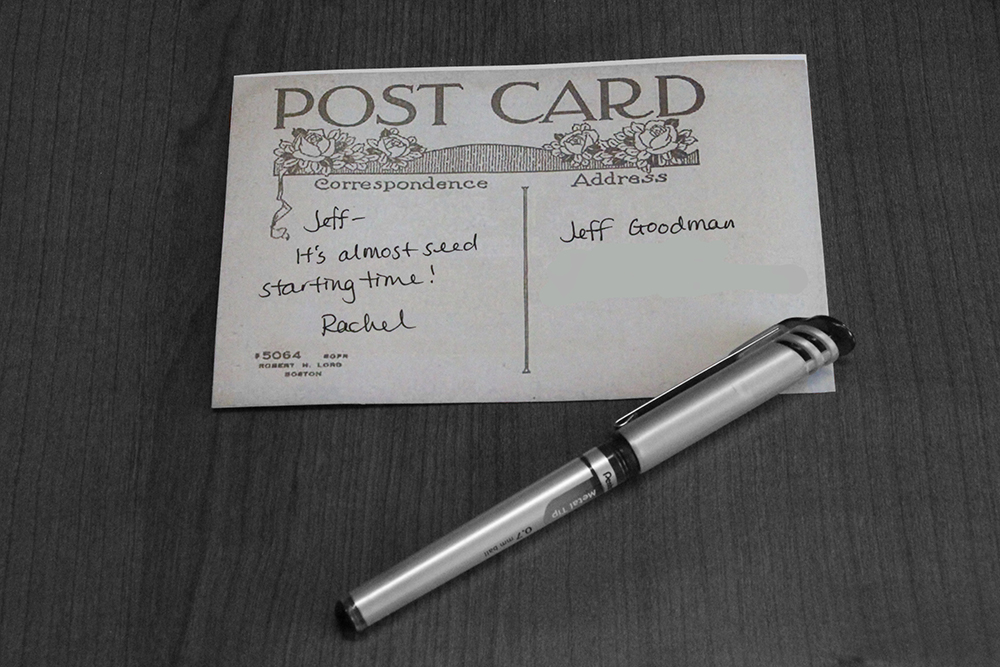 POST CARD
Correspondence
Address
Jeff-
It's almost seed
starting time!
Rachel
Jeff Goodman
5064
ROBERT H. LORD
BOSTON
Metal Tip
0.7 mm ball